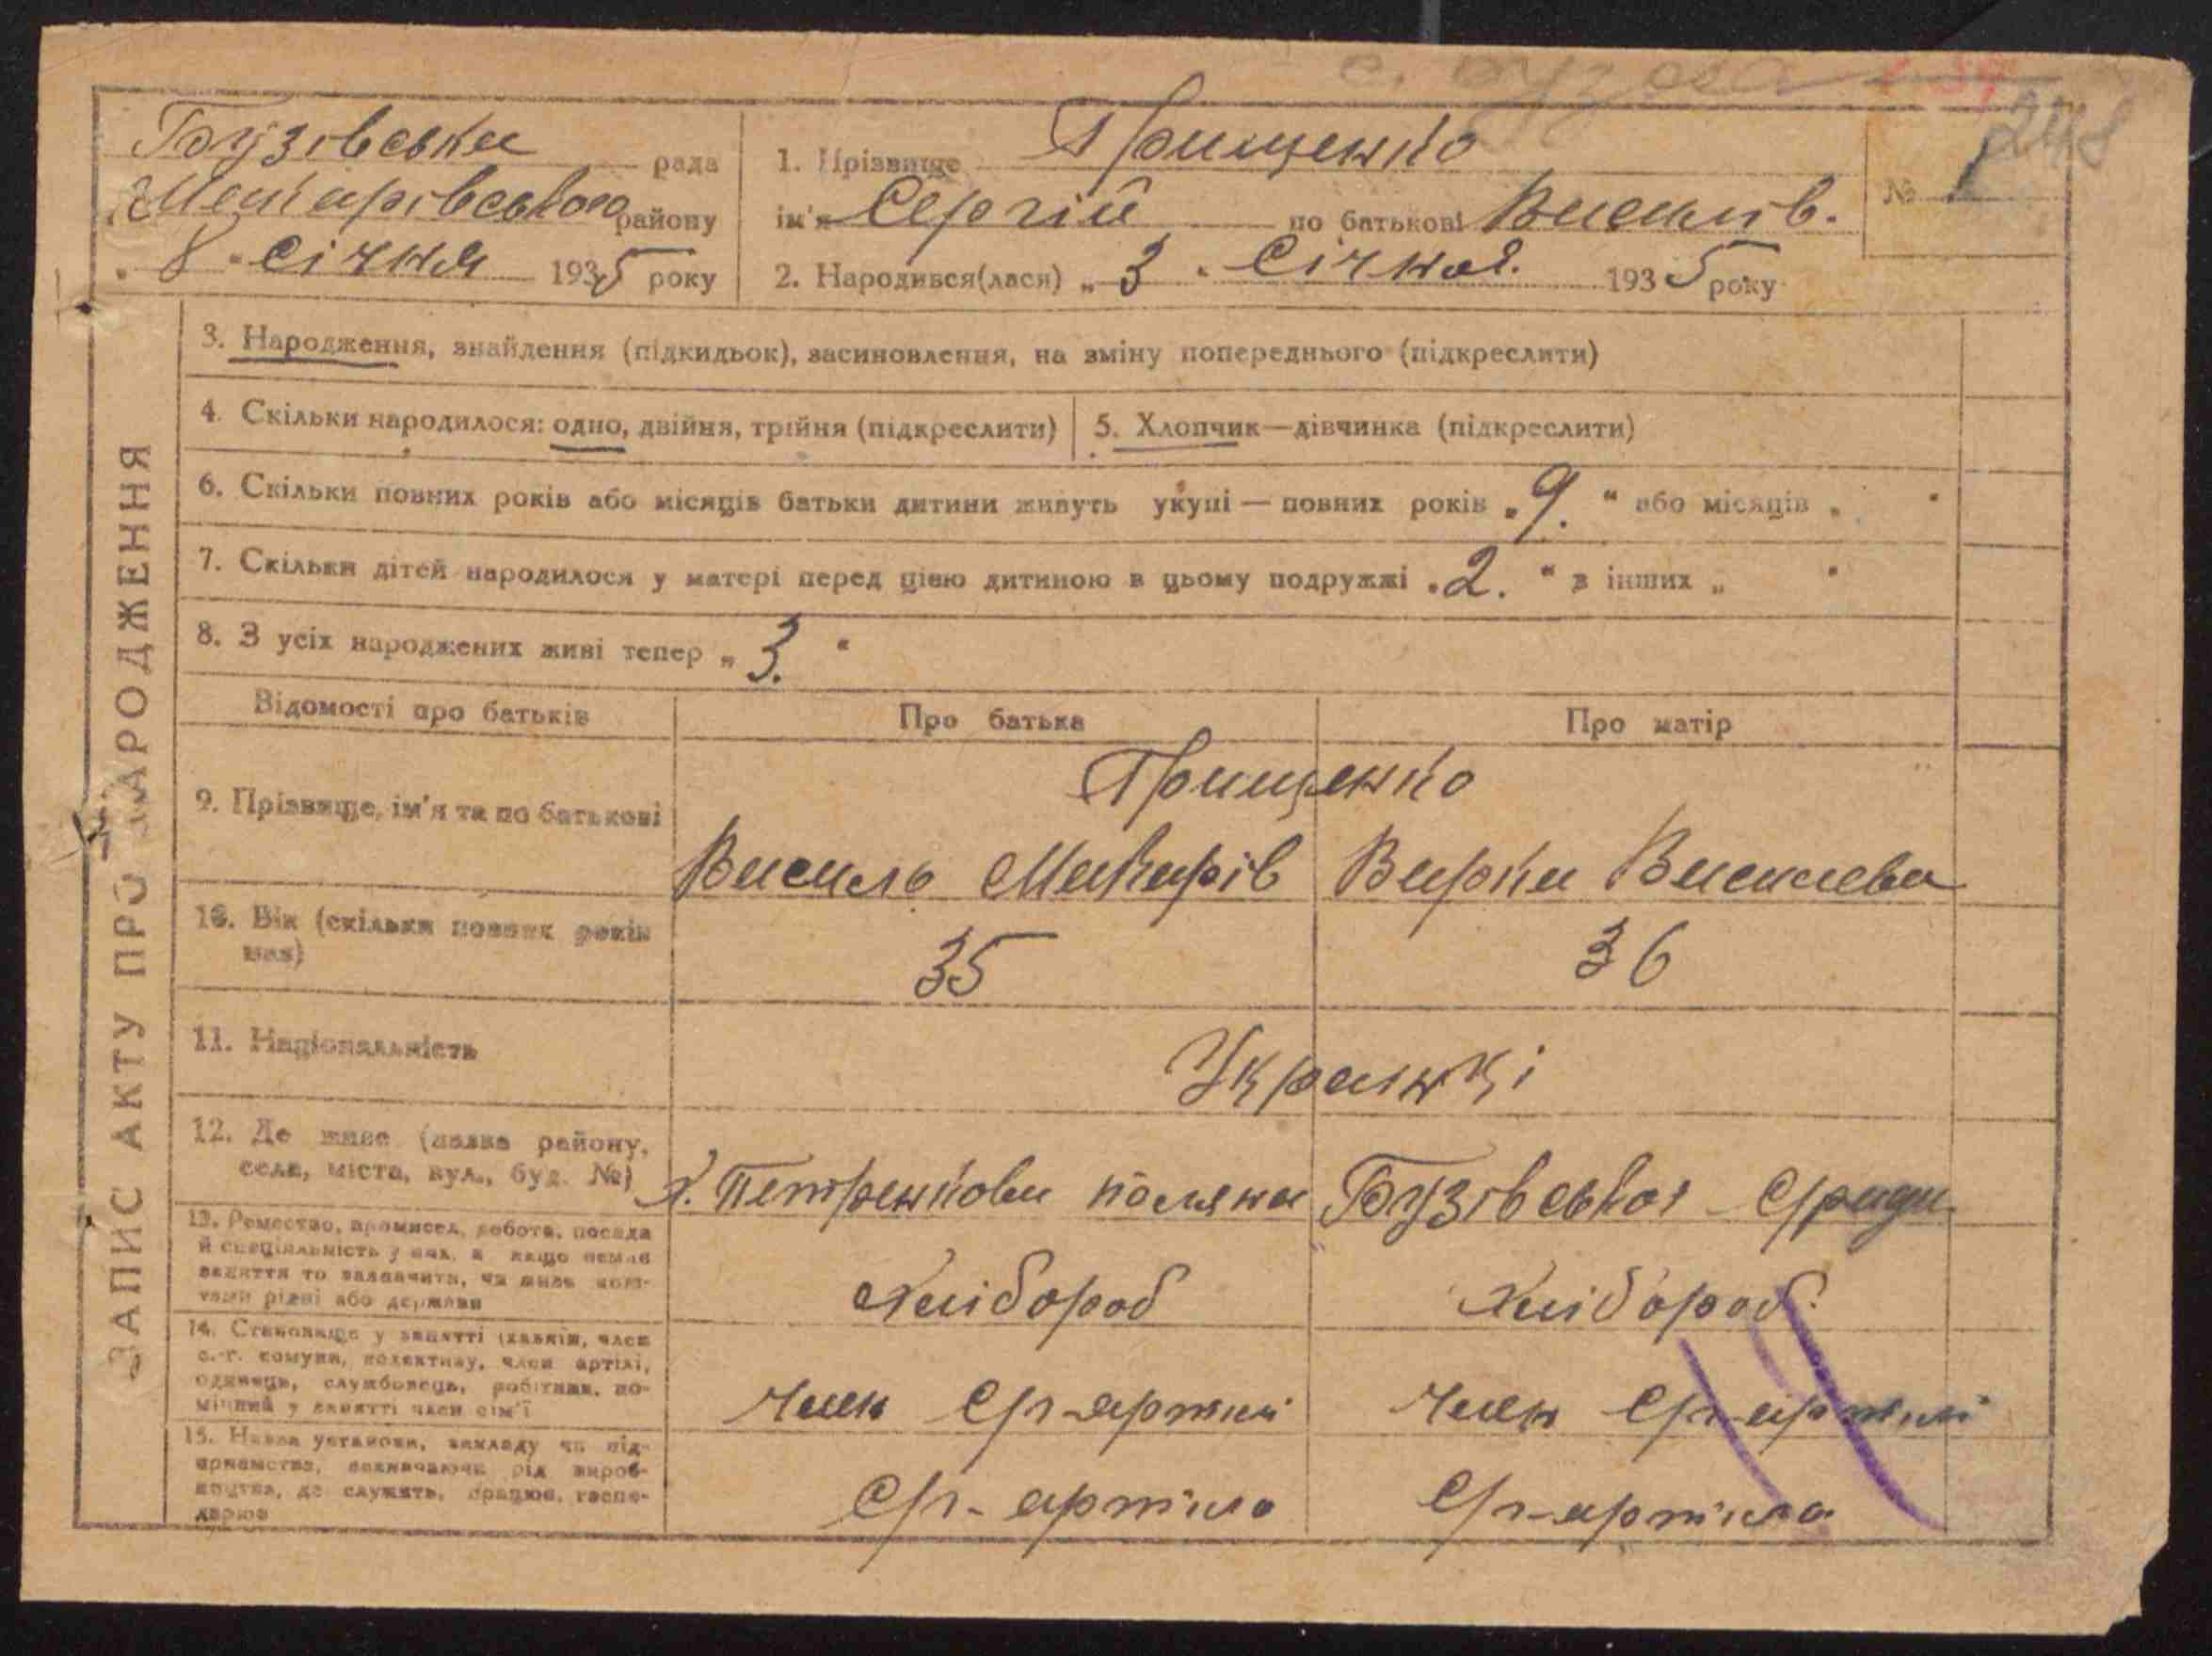 с. Бузова
248
Бузівська рада
Макарівського району
„ 8 “ Січня 1935 року
1. Прізвище Грищенко
ім'я Сергій по батькові Василів.
№ 1
2. Народився(лася) „ 3 “ Січня. 1935 року
ЗАПИС АКТУ ПРО НАРОДЖЕННЯ
3. Народження, знайдення (підкидьок), засиновлення, на зміну попереднього (підкреслити)
4. Скільки народилося: одно, двійня, трійня (підкреслити)
5. Хлопчик—дівчинка (підкреслити)
6. Скільки повних років або місяців батьки дитини живуть укупі — повних років „ 9. “ або місяців „ “
7. Скільки дітей народилося у матері перед цією дитиною в цьому подружжі „ 2. “ в інших „ “
8. З усіх народжених живі тепер „ 3. “
Відомості про батьків
Про батька
Про матір
9. Прізвище, ім'я та по батькові
Грищенко
Василь Макарів
Варка Василева
10. Вік (скільки повних років
мав)
35
36
11. Національність
Українці
12. Де живе (назва району,
села, міста, вул., буд. №)
х. Петренкова поляна Бузівської с/ради
13. Ремество, промисел, робота, посада
й спеціяльність у них, а якщо немає
заняття то зазначити, чи живе кош-
тами рідні або держави
Хлібороб
Хлібороб.
14. Становище у занятті (хазяїн, член
с.-г. комуни, колективу, член артілі,
одинець, службовець, робітник, по-
мічний у занятті член сім'ї
Член с/г-артілі
Член с/г-артілі
15. Назва установи, закладу чи під-
приємства, зазначаючи рід вироб-
ництва, де служить, працює, госпо-
дарює
с/г-артіль
с/г-артіль